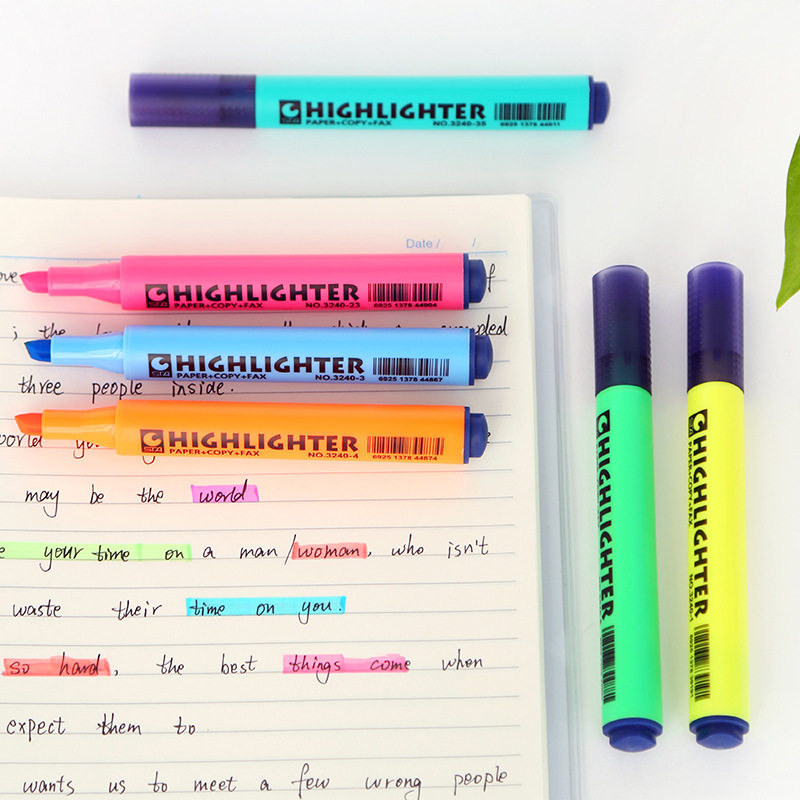 HIGHLIGHTER
PAPER+COPY+FAX NO.3240-35 6925 1378 44911
Date / /
ove of
HIGHLIGHTER
PAPER+COPY+FAX NO.3240-23 6925 1378 44904
; the
HIGHLIGHTER
PAPER+COPY+FAX NO.3240-3 6925 1378 44867
three people inside.
HIGHLIGHTER
PAPER+COPY+FAX NO.3240-4 6925 1378 44874
world
may be the world
e your time on a man/woman, who isn't
waste their time on you.
so hard, the best things come when
expect them to
wants us to meet a few wrong people
HIGHLIGHTER
HIGHLIGHTER
PAPER+COPY+FAX NO.3240-1